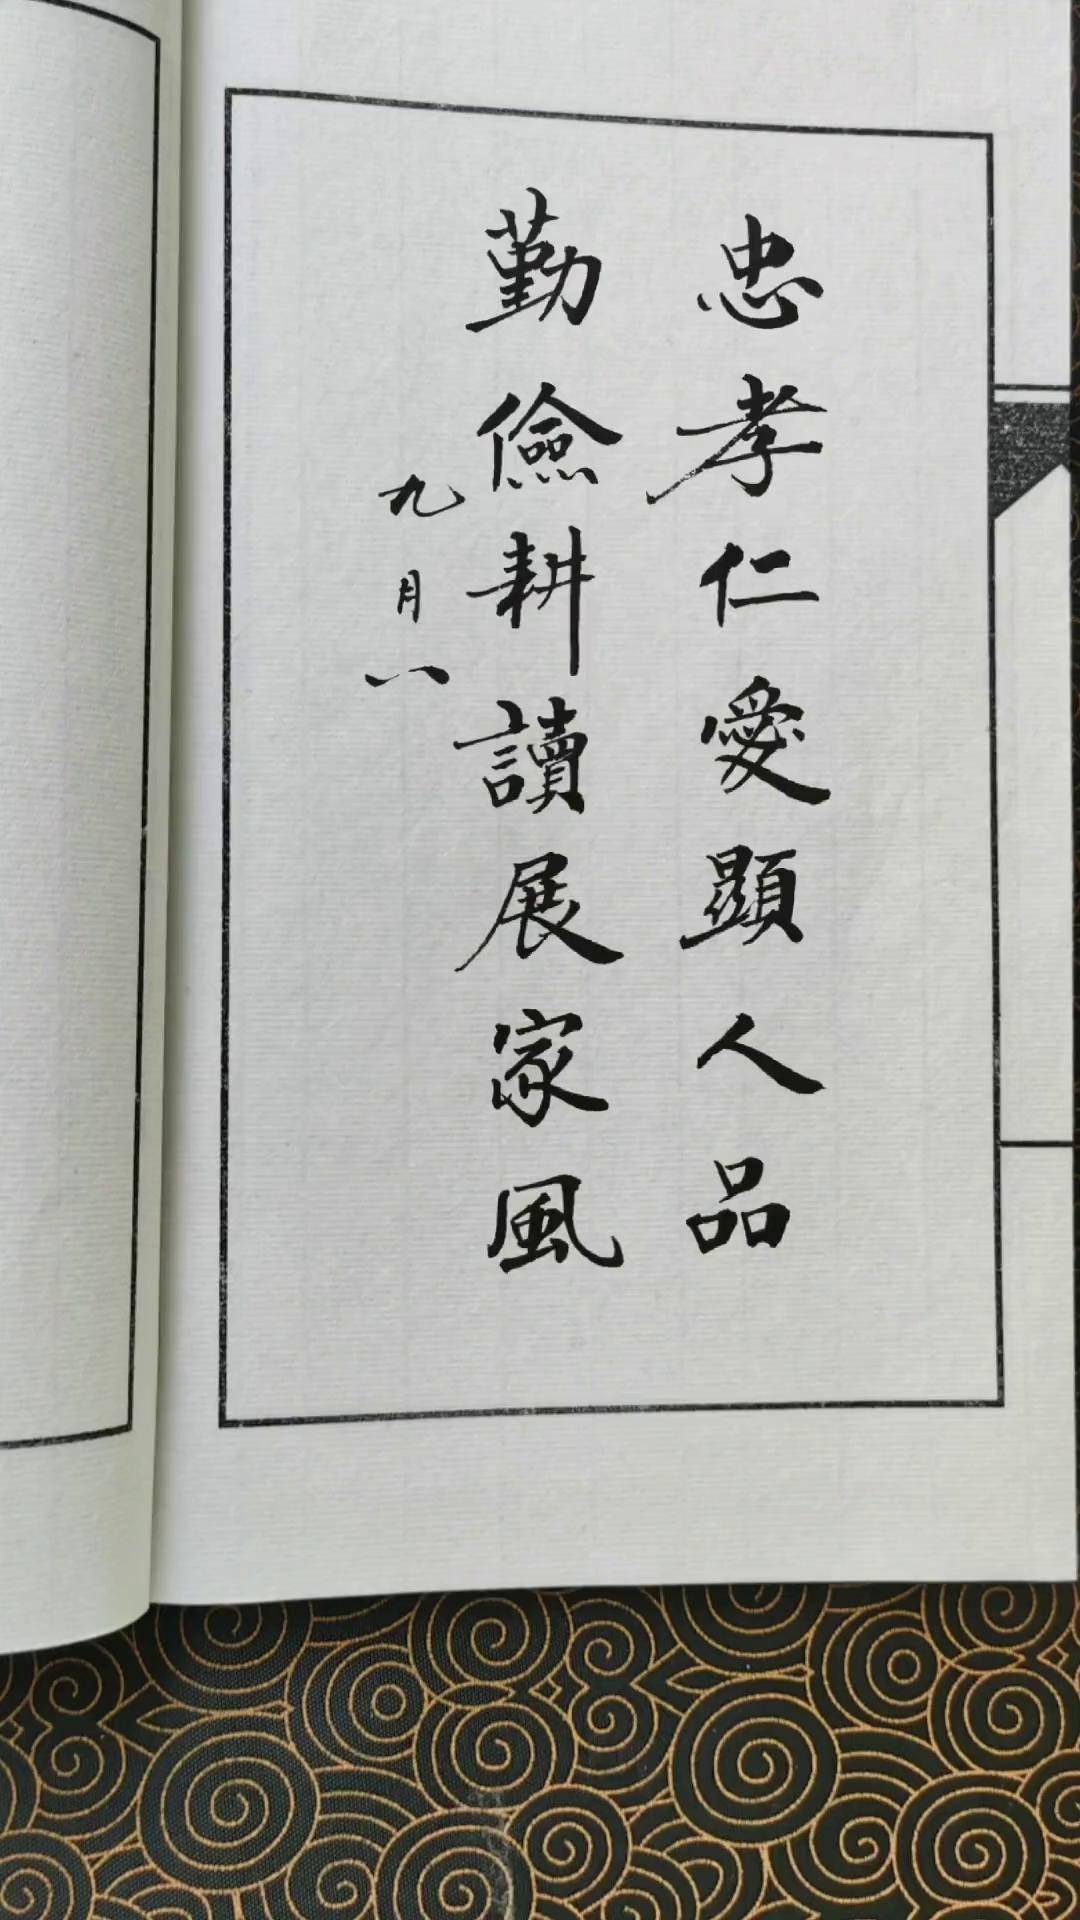 忠孝仁愛顯人品
勤儉耕讀展家風
九月八